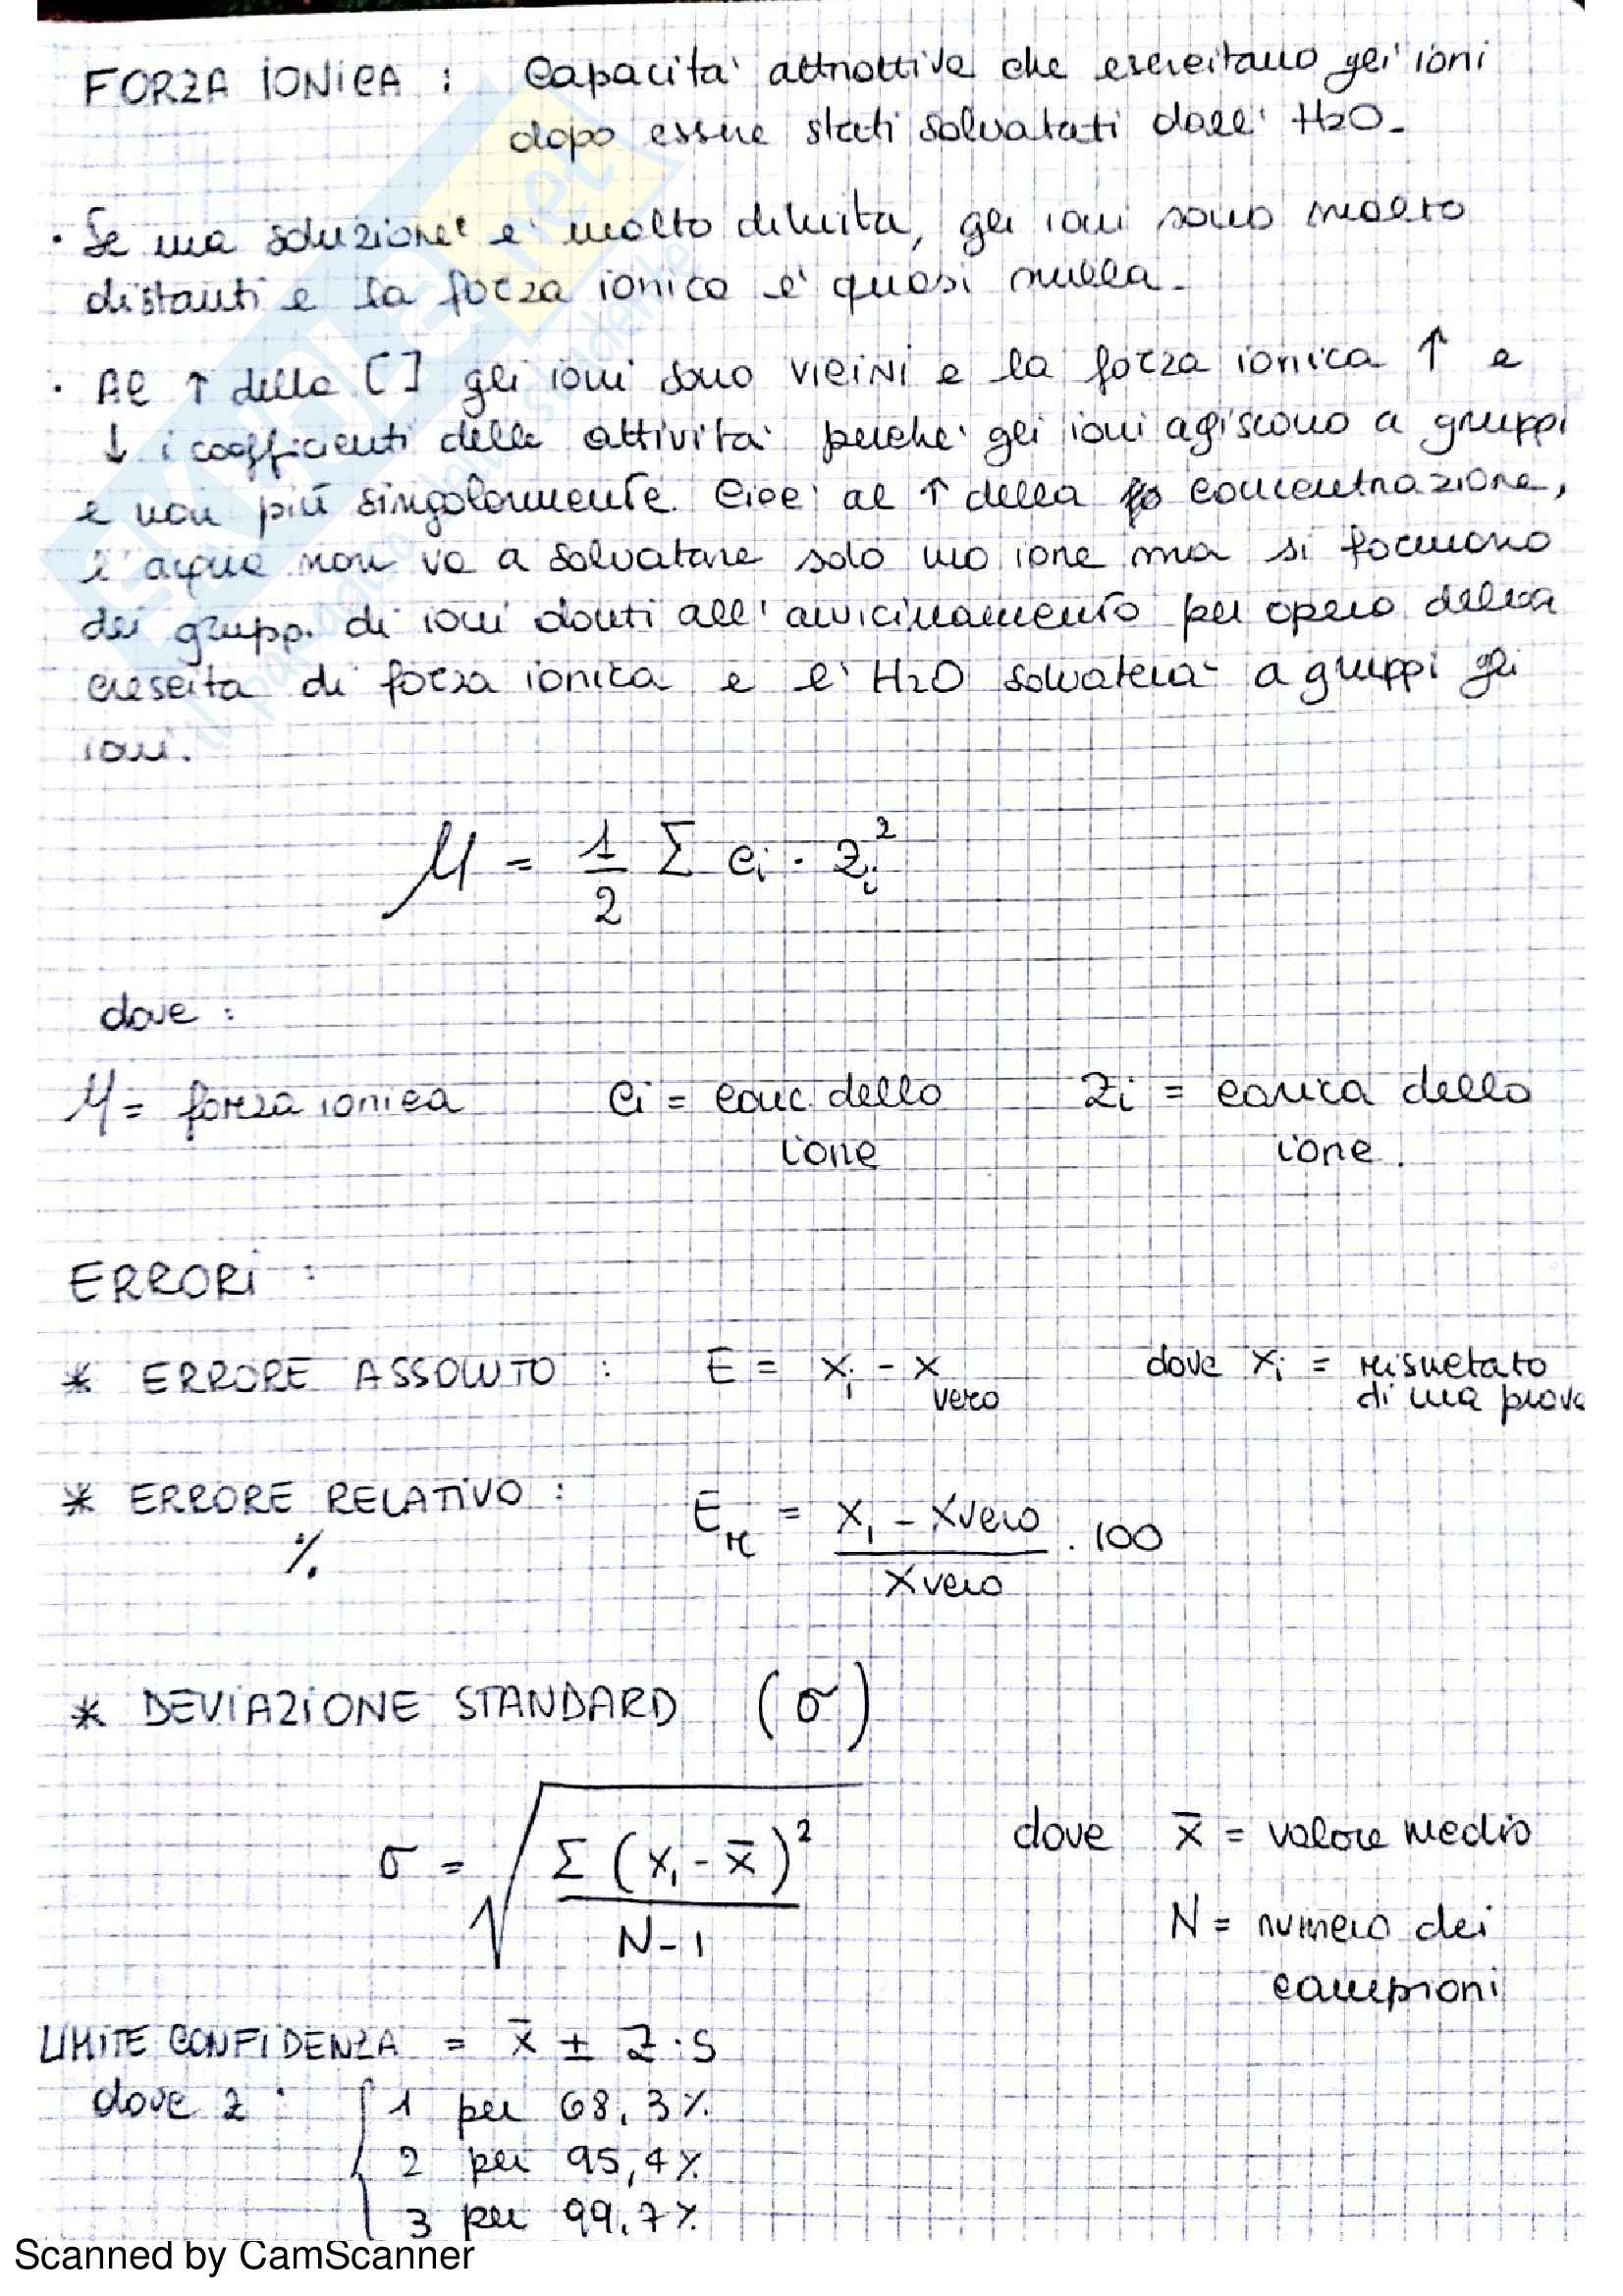 FORZA IONICA : Capacita' attrattiva che esercitano gli ioni
dopo essere stati solvatati dall' H2O.
• Se una soluzione e' molto diluita, gli ioni sono molto
distanti e la forza ionica e' quasi nulla.
• Al ↑ della [ ] gli ioni sono vicini e la forza ionica ↑ e
↓ i coefficienti delle attivita' perche' gli ioni agiscono a gruppi
e non più singolarmente. Cioe' al ↑ della concentrazione,
l'acqua non va a solvatare solo uno ione ma si formano
dei gruppi di ioni dovuti all' avvicinamento per opera della
crescita di forza ionica e l' H2O solvatera' a gruppi gli
ioni.
μ = 1/2 Σ ci · zi²
dove :
μ = forza ionica ci = conc. dello ione zi = carica dello ione.
ERRORI :
* ERRORE ASSOLUTO : E = xi - x vero dove xi = risultato di una prova
* ERRORE RELATIVO : % Er = (xi - xvero) / xvero · 100
* DEVIAZIONE STANDARD (σ)
σ = √(Σ (xi - x̄)² / N-1) dove x̄ = valore medio
N = numero dei
campioni
LIMITE CONFIDENZA = x̄ ± z · s
dove z : { 1 per 68,3%
2 per 95,4%
3 per 99,7%
Scanned by CamScanner